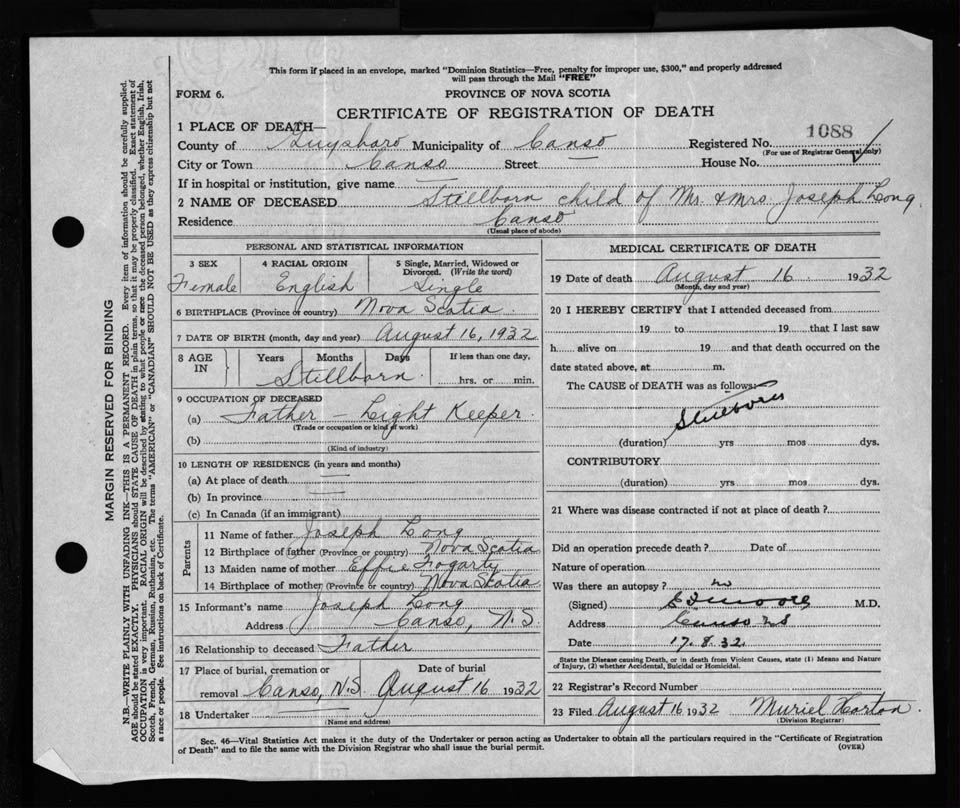 This form if placed in an envelope, marked "Dominion Statistics—Free, penalty for improper use, $300," and properly addressed
will pass through the Mail "FREE"
FORM 6.
PROVINCE OF NOVA SCOTIA
CERTIFICATE OF REGISTRATION OF DEATH
1 PLACE OF DEATH—
1088
County of Guysboro Municipality of Canso Registered No.
(For use of Registrar General only)
City or Town Canso Street — House No.
If in hospital or institution, give name —
2 NAME OF DECEASED Stillborn child of Mr. & Mrs. Joseph Long.
Residence Canso
(Usual place of abode)
PERSONAL AND STATISTICAL INFORMATION
3 SEX
Female
4 RACIAL ORIGIN
English
5 Single, Married, Widowed or
Divorced. (Write the word)
Single
6 BIRTHPLACE (Province or country) Nova Scotia.
7 DATE OF BIRTH (month, day and year) August 16, 1932
8 AGE IN
Years Months Days If less than one day,
Stillborn. hrs. or min.
9 OCCUPATION OF DECEASED
(a) Father — Light Keeper.
(Trade or occupation or kind of work)
(b)
(Kind of industry)
10 LENGTH OF RESIDENCE (in years and months)
(a) At place of death
(b) In province
(c) In Canada (if an immigrant)
Parents
11 Name of father Joseph Long
12 Birthplace of father (Province or country) Nova Scotia
13 Maiden name of mother Effie Fogarty
14 Birthplace of mother (Province or country) Nova Scotia
15 Informant's name Joseph Long
Address Canso, N.S.
16 Relationship to deceased Father
17 Place of burial, cremation or Date of burial
removal Canso, N.S. August 16 1932
18 Undertaker —
(Name and address)
MEDICAL CERTIFICATE OF DEATH
19 Date of death August 16 1932
(Month, day and year)
20 I HEREBY CERTIFY that I attended deceased from
19 to 19 that I last saw
h alive on 19 and that death occurred on the
date stated above, at m.
The CAUSE of DEATH was as follows:
Stillborn
(duration) yrs mos dys.
CONTRIBUTORY
(duration) yrs mos dys.
21 Where was disease contracted if not at place of death?
Did an operation precede death? Date of
Nature of operation
Was there an autopsy? no
(Signed) Moore M.D.
Address Canso NS
Date 17.8.32.
State the Disease causing Death, or in death from Violent Causes, state (1) Means and Nature
of Injury, (2) whether Accidental, Suicidal or Homicidal.
22 Registrar's Record Number
23 Filed August 16 1932 Muriel Horton.
(Division Registrar)
Sec. 46—Vital Statistics Act makes it the duty of the Undertaker or person acting as Undertaker to obtain all the particulars required in the "Certificate of Registration
of Death" and to file the same with the Division Registrar who shall issue the burial permit.
(OVER)
MARGIN RESERVED FOR BINDING
N.B.—WRITE PLAINLY WITH UNFADING INK—THIS IS A PERMANENT RECORD. Every item of information should be carefully supplied.
AGE should be stated EXACTLY. PHYSICIANS should STATE CAUSE OF DEATH in plain terms, so that it may be properly classified. Exact statement of
OCCUPATION is very important. RACIAL ORIGIN will be described by stating to what people or race the deceased person belonged, whether English, Irish,
Scotch, French, German, Russian, Ruthenian, etc. The terms "AMERICAN" or "CANADIAN" SHOULD NOT BE USED as they express citizenship but not
a race or people. See instructions on back of Certificate.